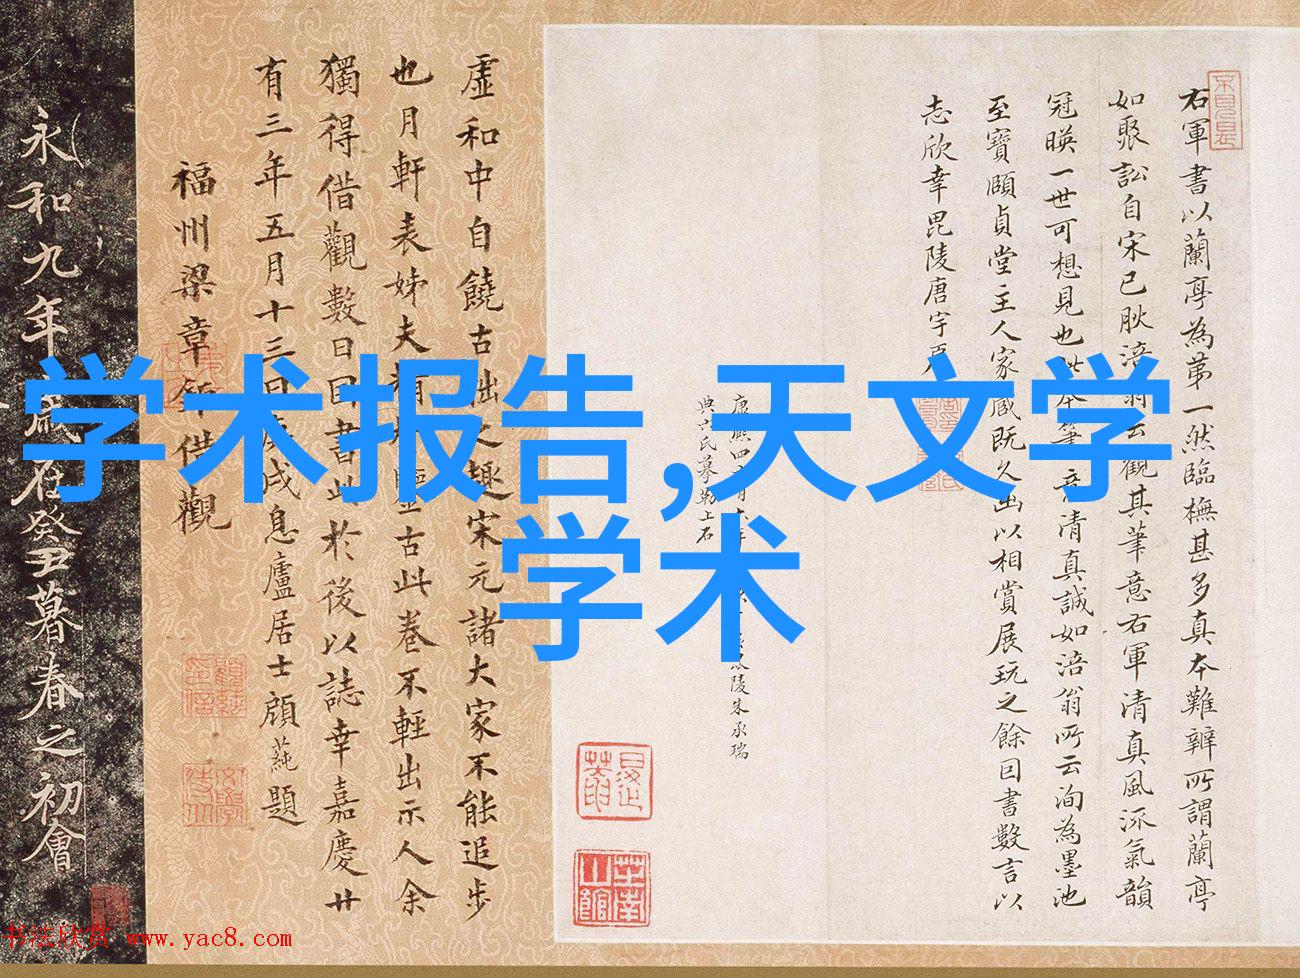 右軍書以蘭亭為第一然臨橅甚多真本難辨所謂蘭亭
如聚訟自宋已肰涪翁云觀其筆意右軍清真風流氣韻
冠暎一世可想見也此本筆意清真誠如涪翁所云洵為墨池
至寶頤貞堂主人家藏既久出以相賞展玩之餘因書數言以
志欣幸毘陵唐宇
虛和中自饒古拙之趣宋元諸大家不能追步
也月軒表姊夫古此卷不輕出示人余
獨得借觀數日因書此於後以誌幸嘉慶廿
有三年五月十三日息廬居士顧蒓題
福州梁章鉅借觀
永和九年歲在癸丑暮春之初會
学术报告,天文学
学术
书法欣赏 www.yac8.com